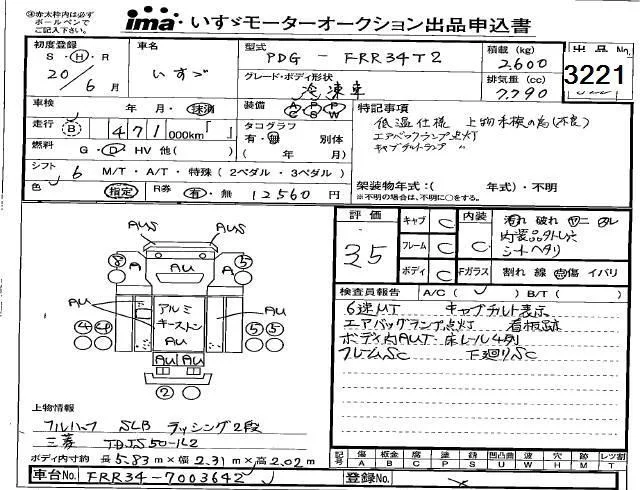 ④赤太枠内は必ず
ボールペンで
ご記入下さい。
ima いすゞモーターオークション出品申込書
初度登録 S・H・R 20/6月
車名 いすゞ
型式 PDG-FRR34T2
積載(kg) 2,600
出品No. 3221
グレード・ボディ形状 冷凍車
排気量(cc) 7,790
車検 年・月・抹消
装備 AC PS PW
特記事項
低温仕様 上物未検の為(不良)
エアバックランプ点灯
キャブチルトランプ 〃
走行 B 471,000km『 』
タコグラフ 有・無 別体 ( 年 月)
燃料 G・D・HV 他( )
シフト 6 M/T・A/T・特殊(2ペダル・3ペダル)
架装物年式:( 年式)・不明
※不明の場合は、不明に○をする。
色 指定 R券 有・無 12560円
評価 3.5
キャブ C 内装 C
汚れ 破れ ヤニ スレ
内装品外し穴
シートヘタリ
フレーム C
ボディ C Fガラス 割れ 線 点傷 イバリ
検査員報告 A/C( ) B/T( )
6速MT キャブチルト表示
エアバッグランプ点灯 看板跡
ボディ内AUT・床レール4列
フレームSC 下廻りSC
AUS AUS
⑧ A AU A ⑤
AU アルミ AU
キーストン
④④ AU ⑤⑤
AU AU
②
上物情報
フルハーフ SLB ラッシング2段
三菱 TDJS50-1L2
ボディ内寸約 長5.83m×幅2.31m×高2.02m
記号 傷A 板金B 腐C 塗P 錆S 凹凸曲U 波W 穴H 跡M レツ割T
車台No. FRR34-7003642
登録No.